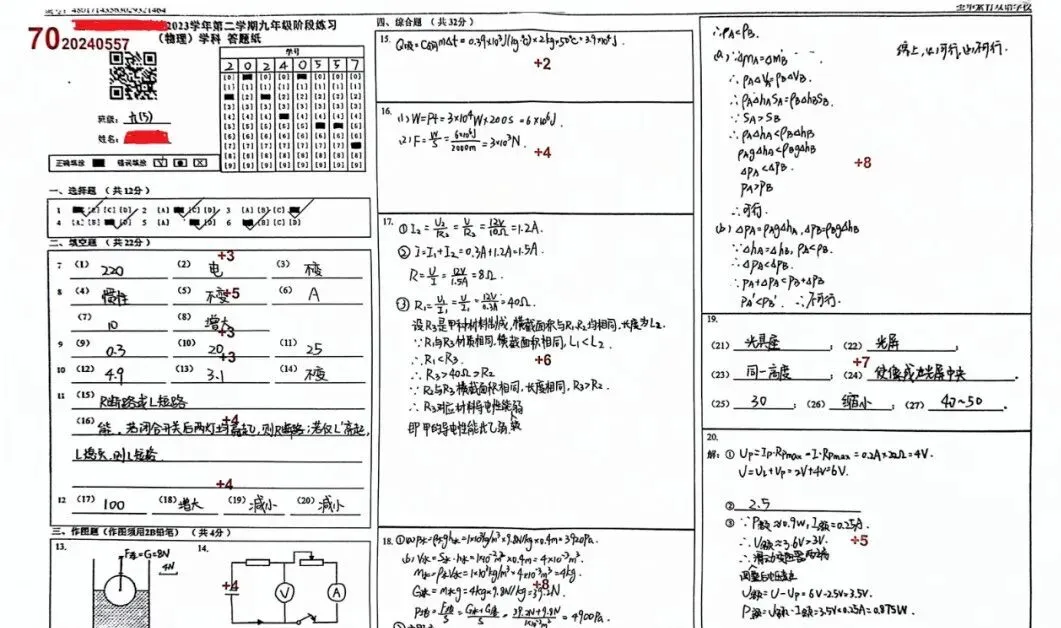 2023学年第二学期九年级阶段练习
70 20240557
（物理）学科 答题纸
学号
2 0 2 4 0 5 5 7
班级：九(5)
姓名：
正确填涂 错误填涂
一、选择题 （共12分）
1 [B] [C] [D] 2 [A] [C] [D] 3 [A] [B] [C]
4 [A] [B] [C] 5 [A] [B] [D] 6 [B] [C] [D]
二、填空题 （共22分）
+3
7 (1) 220 (2) 电 (3) 不变
8 (4) 惯性 (5) 不变 +5 (6) A
(7) 10 (8) 增大
+3
9 (9) 0.3 (10) 20 (11) 25
+3
10 (12) 4.9 (13) 3.1 (14) 不变
11 (15) R断路或L短路
+4
(16) 能，若闭合开关后两灯均
则R断路；若仅L
L熄灭，则L短路
+4
12 (17) 100 (18) 增大 (19) 减小 (20) 减小
三、作图题（作图须用2B铅笔） （共4分）
13. F浮=G=8N
4N
14.
+4
V A
四、综合题 （共32分）
15. Q吸=C铜m△t=0.39×10³J/(kg·℃)×2kg×50℃=3.9×10⁴J.
+2
16. (1) W=Pt=3×10⁴W×200s=6×10⁶J.
(2) F=W/S=6×10⁶J/2000m=3×10³N.
+4
17. ① I₂=U₂/R₂=U/R₂=12V/10Ω=1.2A.
② I=I₁+I₂=0.3A+1.2A=1.5A.
R=U/I=12V/1.5A=8Ω.
③ R₁=U₁/I₁=U/I₁=12V/0.3A=40Ω.
设R₃是甲种材料制成，横截面积与R₁,R₂均相同，长度为L₂.
∵R₁与R₃材质相同，横截面积相同，L₁<L₂.
∴R₁<R₃.
+6
∴R₃>40Ω>R₂
∵R₂与R₃横截面积相同，长度相同，R₃>R₂.
∴R₃对应材料导电性能弱
即甲的导电性能比乙弱.
18. ①(a) P水=ρ水gh水=1×10³kg/m³×9.8N/kg×0.4m=3920Pa.
(b) V水=S水·h水=1×10⁻²m²×0.4m=4×10⁻³m³.
m水=ρ水V水=1×10³kg/m³×4×10⁻³m³=4kg.
G水=m水g=4kg×9.8N/kg=39.2N.
+8
=39.2N+9.8N/1×10⁻²m²=4900Pa.
∴PA<PB.
综上，(a)可行，(b)不可行.
(a) ∵△mA=△mB
∴ρA△VA=ρB△VB.
∴ρA△hASA=ρB△hBSB.
∵SA>SB
∴ρA△hA<ρB△hB
ρAg△hA<ρBg△hB
+8
△PA<△PB.
PA>PB
∴可行.
(b) △PA=ρAg△hA, △PB=ρBg△hB
∵△hA=△hB, ρA<ρB.
∴△PA<△PB.
∵PA+△PA<PB+△PB
PA'<PB'. ∴不可行.
19.
(21) 光具座； (22) 光屏；
+7
(23) 同一高度； (24) 使像成在光屏中央.
(25) 30； (26) 缩小； (27) 40~50.
20.
解：① UP=IP·RPmax=I·RPmax=0.2A×20Ω=4V.
U=UL+UP=2V+4V=6V.
② 2.5
③ ∵P额≈0.9W, I额=0.25A.
+5
∴U额≈3.6V>3V
U额=U-UP=6V-2.5V=3.5V.
P额=U额·I额=3.5V×0.25A=0.875W.